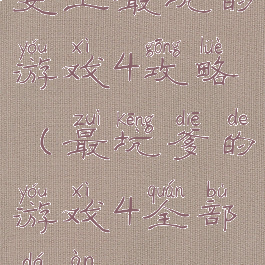 史上最坑的
yóu xì gōng lüè
游戏4攻略
zuì kēng diē de
(最坑爹的
yóu xì quán bù
游戏4全部
dá àn